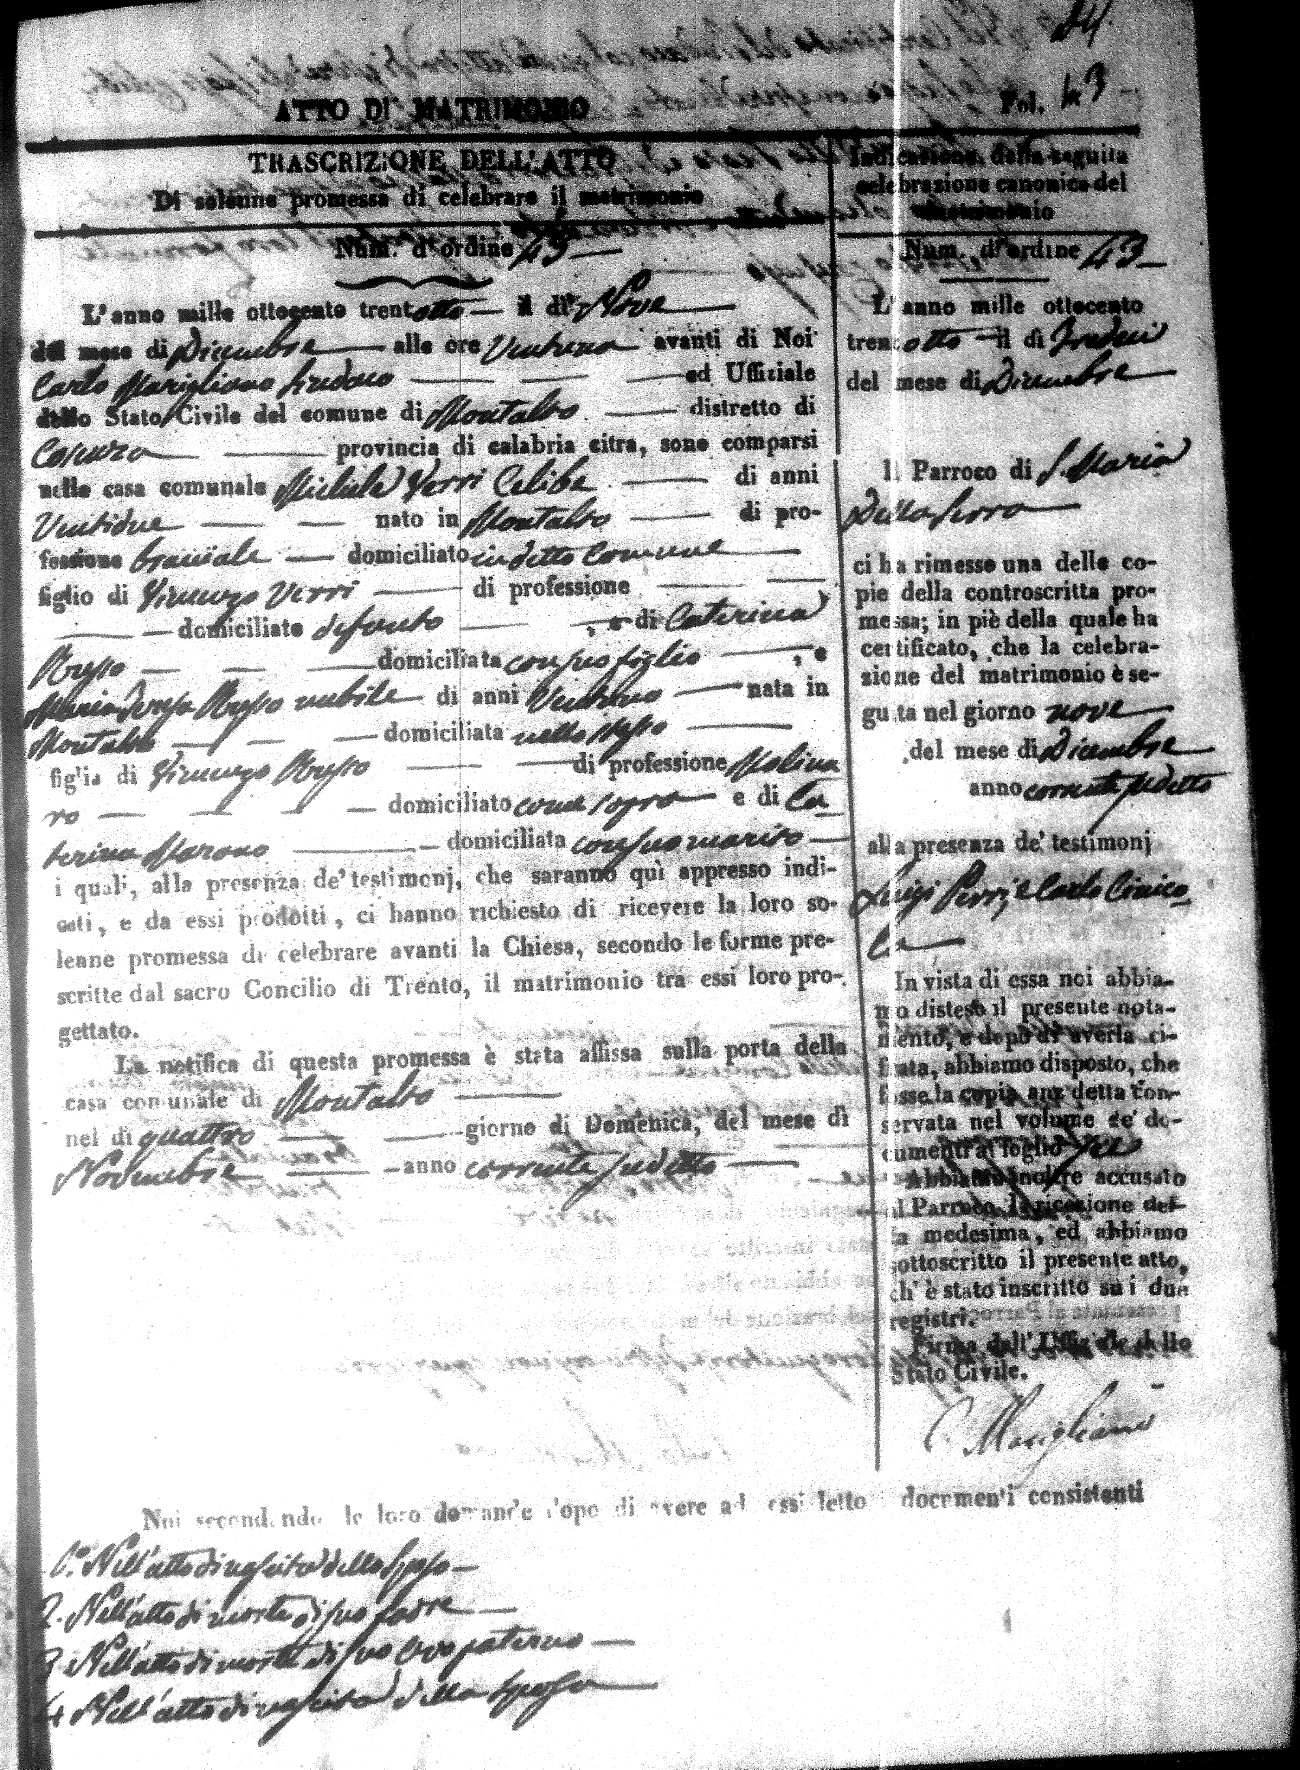 24
ATTO DI MATRIMONIO
Fol. 43
TRASCRIZIONE DELL'ATTO
Di solenne promessa di celebrare il matrimonio
Num. d'ordine 43
L'anno mille ottocento trentotto il dì Nove
del mese di Dicembre alle ore Ventuna avanti di Noi
Carlo Marigliano Sindaco ed Uffiziale
dello Stato Civile del comune di Montalto distretto di
Cosenza provincia di calabria citra, sono comparsi
nella casa comunale Michele Verri Celibe di anni
Ventidue nato in Montalto di pro-
fessione bracciale domiciliato in detto Comune
figlio di Vincenzo Verri di professione
domiciliato defonto , e di Caterina
Russo domiciliata con suo figlio , e
Maria Teresa Russo nubile di anni Ventuno nata in
Montalto domiciliata nello stesso
figlia di Vincenzo Russo di professione Molina
ro domiciliato come sopra e di Ca
terina Marono domiciliata con suo marito
i quali, alla presenza de' testimonj, che saranno quì appresso indi-
cati, e da essi prodotti, ci hanno richiesto di ricevere la loro so-
lenne promessa di celebrare avanti la Chiesa, secondo le forme pre-
scritte dal sacro Concilio di Trento, il matrimonio tra essi loro pro-
gettato.
La notifica di questa promessa è stata affissa sulla porta della
casa comunale di Montalto
nel dì quattro giorno di Domenica, del mese di
Novembre anno corrente sudetto
Indicazione della seguita
celebrazione canonica del
matrimonio
Num. d'ordine 43
L'anno mille ottocento
trentotto il dì Tredici
del mese di Dicembre
Il Parroco di S. Maria
Della Serra
ci ha rimesso una delle co-
pie della controscritta pro-
messa; in piè della quale ha
certificato, che la celebra-
zione del matrimonio è se-
guita nel giorno nove
del mese di Dicembre
anno corrente sudetto
alla presenza de' testimonj
Luigi Perri, e Carlo Cinico
la
In vista di essa noi abbia-
mo disteso il presente nota-
mento, e dopo di averla ci-
frata, abbiamo disposto, che
fosse la copia anzidetta con-
servata nel volume de' do-
cumenti al foglio
Abbiamo inoltre accusato
al Parroco la ricezione del-
la medesima, ed abbiamo
sottoscritto il presente atto,
ch'è stato inscritto su i due
registri.
Firma dell'Uffiziale dello
Stato Civile.
C. Marigliano
Noi secondando le loro domande dopo di avere ad essi letto i documenti consistenti
1.° Nell'atto di nascita dello Sposo
2. Nell'atto di morte di suo padre
3. Nell'atto di morte di suo Avo paterno
4 Nell'atto di nascita della Sposa